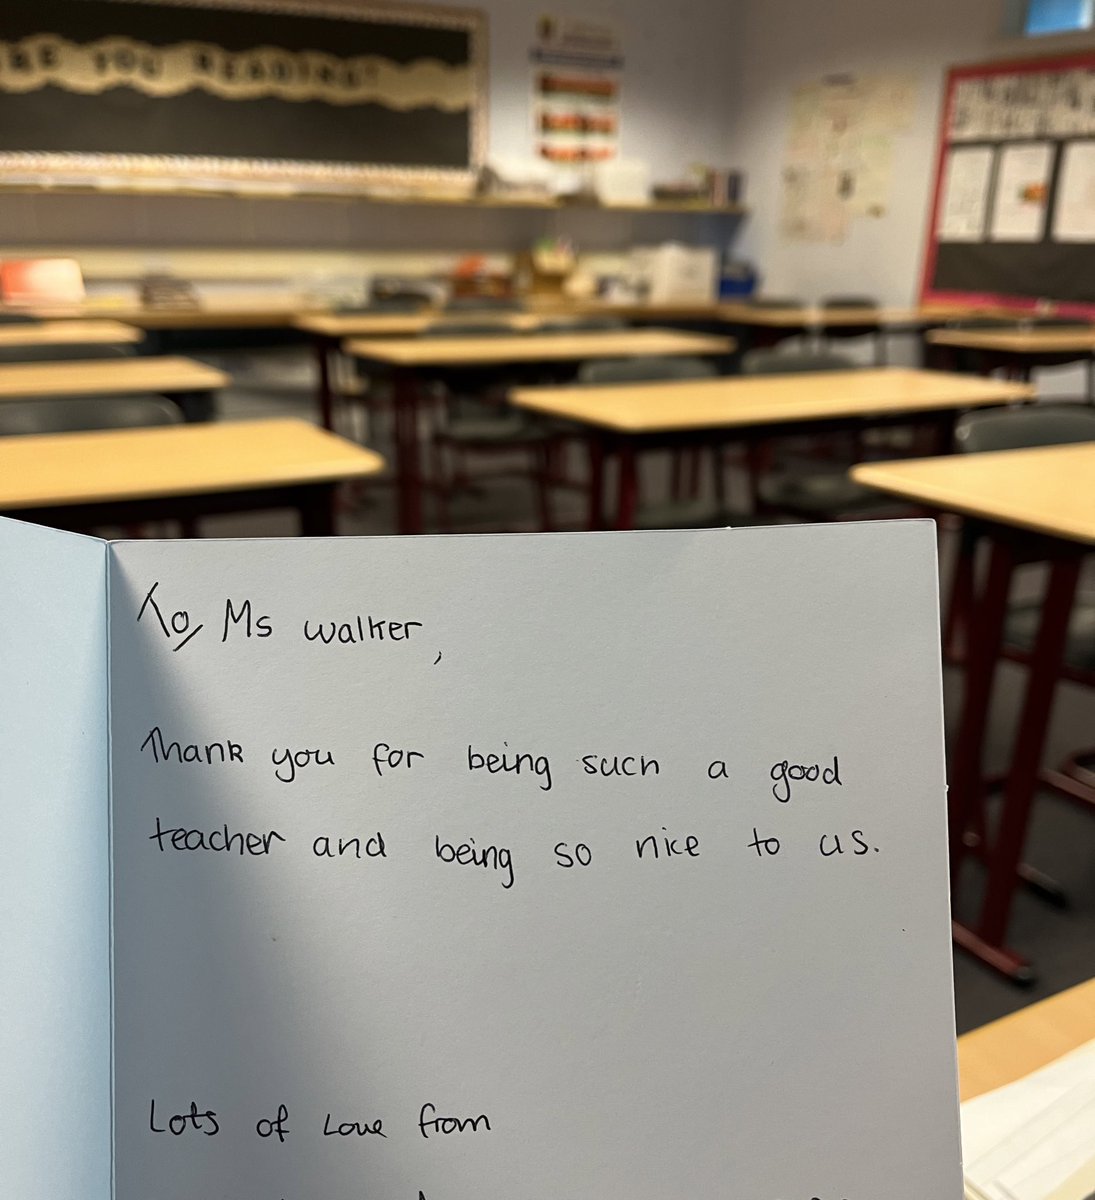 ARE YOU READING?
To, Ms walker,
Thank you for being such a good
teacher and being so nice to us.
Lots of Love from